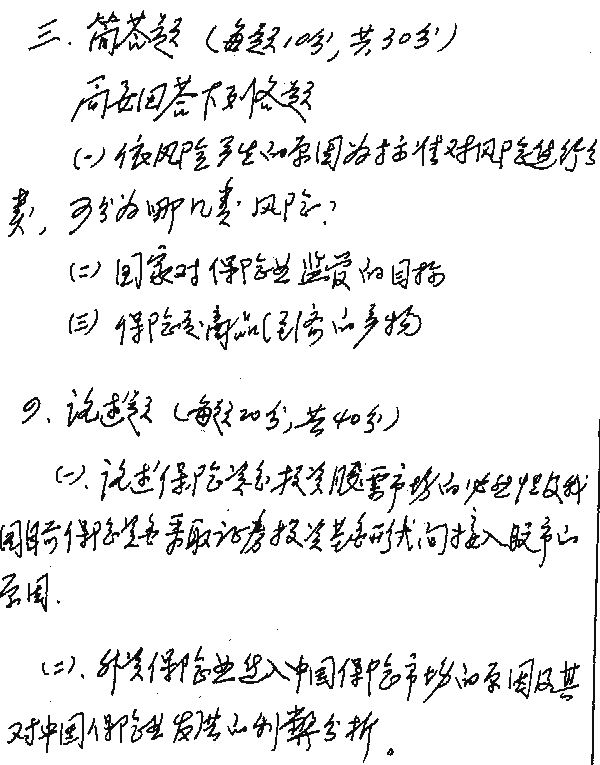 三、简答题（每题10分，共30分）
简要回答下列各题
(一)依风险产生的原因为标准对风险进行分
类，可分为哪几类风险？
(二)国家对保险业监管的目标
(三)保险是商品经济的产物
四、论述题（每题20分，共40分）
(一)、论述保险资金投资股票市场的必要性及我
国目前保险资金采取证券投资基金形式间接入股市的
原因.
(二)、外资保险业进入中国保险市场的原因及其
对中国保险业发展的利弊分析。